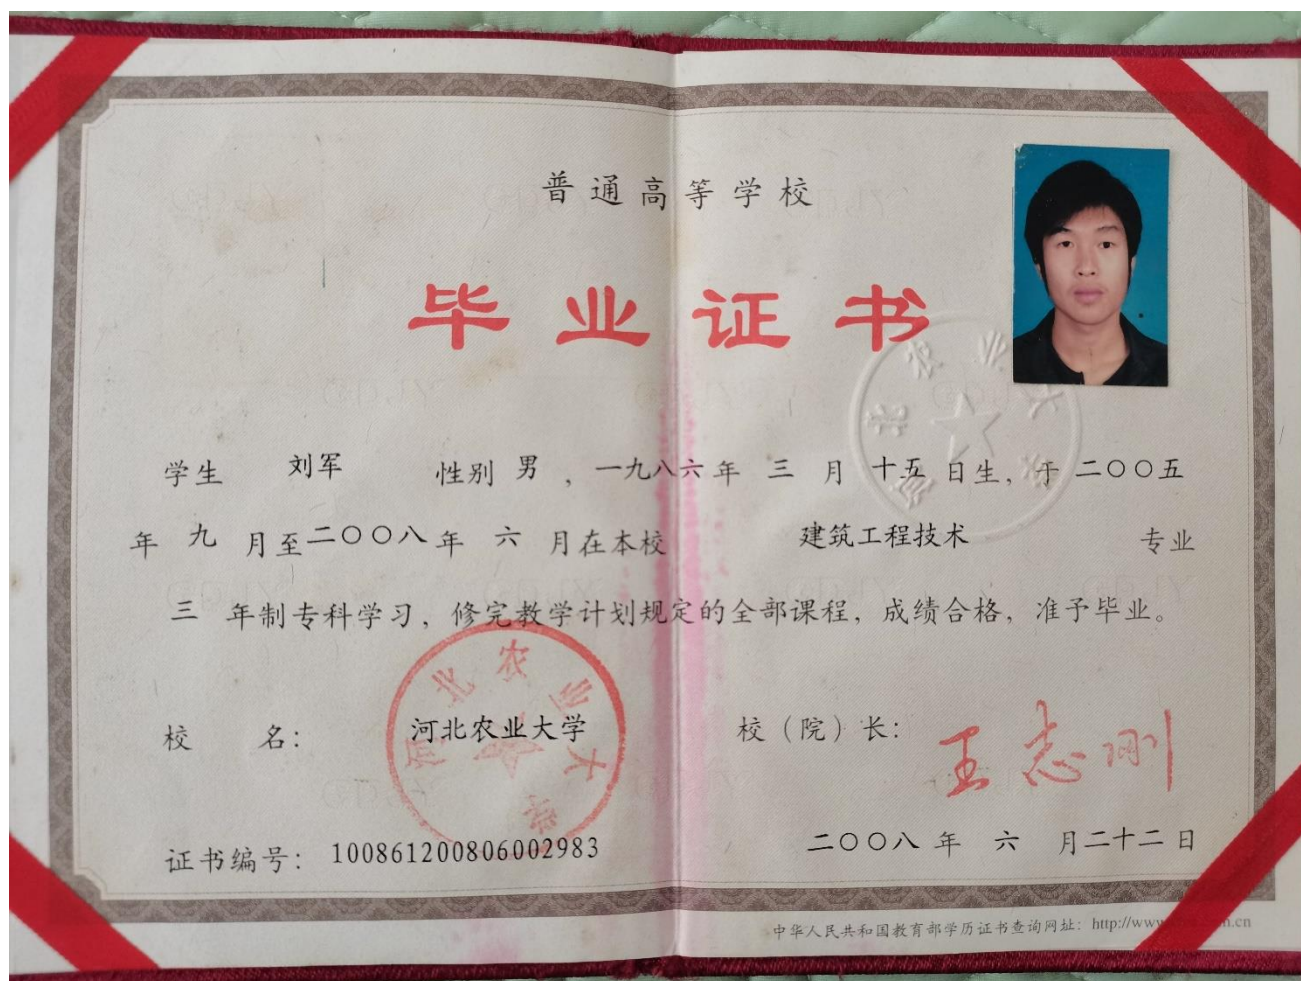 普通高等学校
毕业证书
学生 刘军 性别 男 ，一九八六年 三 月 十五 日生，于 二〇〇五
年 九 月至二〇〇八年 六 月在本校 建筑工程技术 专业
三 年制专科学习，修完教学计划规定的全部课程，成绩合格，准予毕业。
校 名： 河北农业大学 校（院）长： 王志刚
河北农业大学
证书编号： 100861200806002983 二〇〇八 年 六 月二十二日
中华人民共和国教育部学历证书查询网址：http://www
河北农业大学